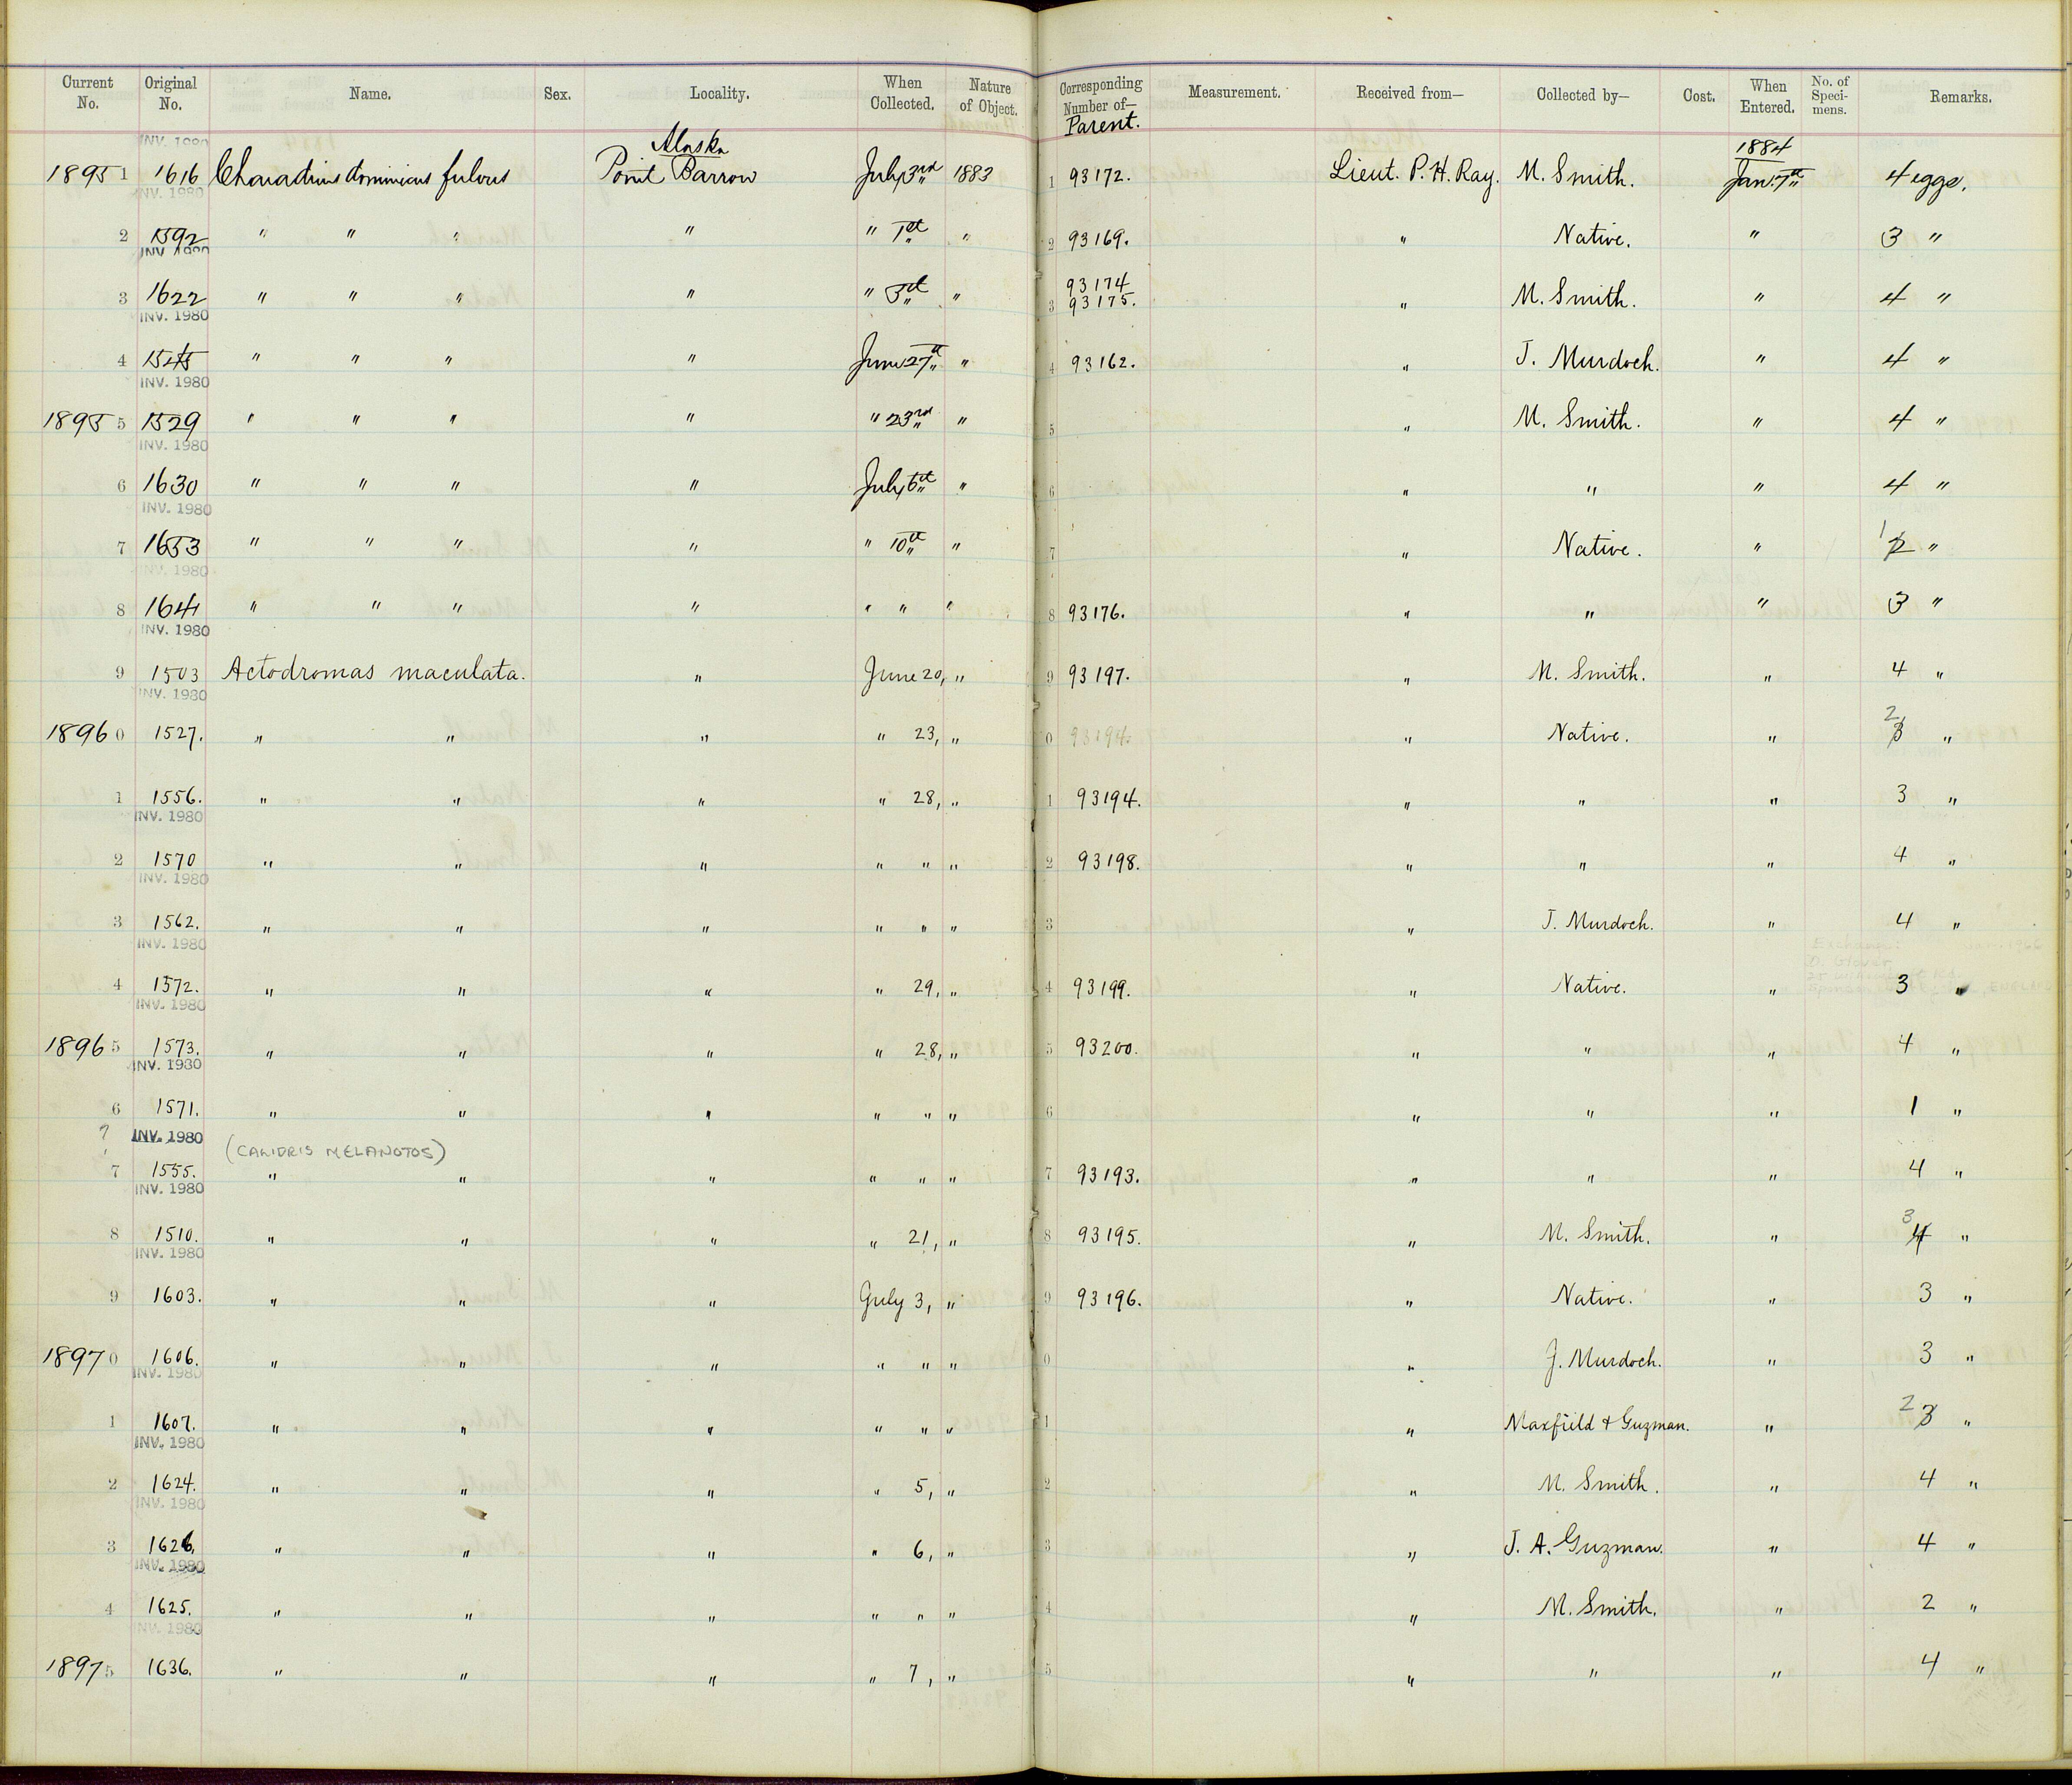 Current No. Original No. Name. Sex. Locality. When Collected. Nature of Object. Corresponding Number of— Parent. Measurement. Received from— Collected by— Cost. When Entered. No. of Speci-mens. Remarks.
INV. 1980 Alaska 1884
18951 1616 Charadrius dominicus fulvus Point Barrow July 3rd 1883 1 93172. Lieut. P. H. Ray. M. Smith. Jan. 7th 4 eggs.
INV. 1980
2 1592 " " " " " 1st " 2 93169. " Native. " 3 "
INV. 1980
93174
3 1622 " " " " " 5th " 3 93175. " M. Smith. " 4 "
INV. 1980
4 1545 " " " " June 27th " 4 93162. " J. Murdoch. " 4 "
INV. 1980
18955 1529 " " " " " 23rd " 5 " M. Smith. " 4 "
INV. 1980
6 1630 " " " " July 6th " 6 " " " 4 "
INV. 1980
7 1653 " " " " " 10th " 7 " Native. " 1 2 "
INV. 1980
8 1641 " " " " " " " 8 93176. " " " 3 "
INV. 1980
9 1503 Actodromas maculata. " June 20, " 9 93197. " M. Smith. " 4 "
INV. 1980
18960 1527. " " " " 23, " 0 93194. " Native. " 2 3 "
1 1556. " " " " 28, " 1 93194. " " " 3 "
INV. 1980
2 1570 " " " " " " 2 93198. " " " 4 "
INV. 1980
3 1562. " " " " " " 3 " J. Murdoch. " 4 "
INV. 1980
4 1572. " " " " 29, " 4 93199. " Native. " 3 "
INV. 1980
18965 1573. " " " " 28, " 5 93200. " " " 4 "
INV. 1980
6 1571. " " " " " " 6 " " " 1 "
? INV. 1980
(CALIDRIS MELANOTOS)
7 1555. " " " " " " 7 93193. " " " 4 "
INV. 1980
8 1510. " " " " 21, " 8 93195. " M. Smith. " 3 4 "
INV. 1980
9 1603. " " " July 3, " 9 93196. " Native. " 3 "
18970 1606. " " " " " " 0 " J. Murdoch. " 3 "
INV. 1980
1 1607. " " " " " " 1 " Maxfield & Guzman. " 2 3 "
INV. 1980
2 1624. " " " " 5, " 2 " M. Smith. " 4 "
INV. 1980
3 1626. " " " " 6, " 3 " J. A. Guzman. " 4 "
INV. 1980
4 1625. " " " " " " 4 " M. Smith. " 2 "
INV. 1980
18975 1636. " " " " 7, " 5 " " " 4 "